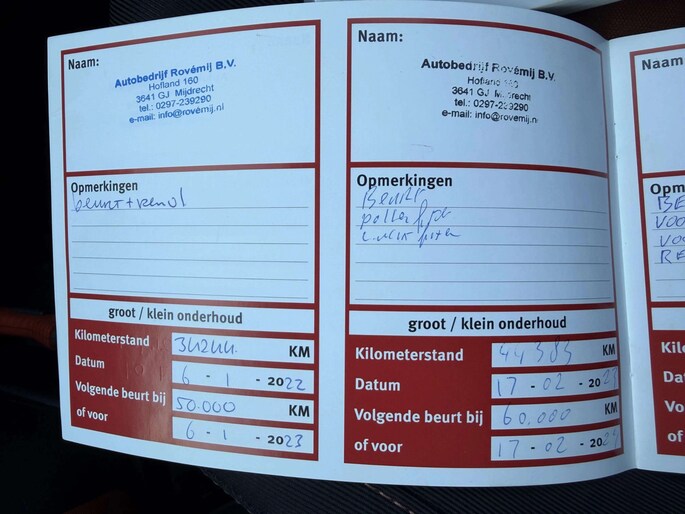 Naam:
Autobedrijf Rovémij B.V.
Hofland 160
3641 GJ Mijdrecht
tel.: 0297-239290
e-mail: info@rovemij.nl
Opmerkingen
beurt +
groot / klein onderhoud
Kilometerstand KM
Datum 6 - 1 - 2022
Volgende beurt bij 50.000 KM
of voor 6 - 1 - 2023
Naam:
Autobedrijf Rovémij B.V.
Hofland 160
3641 GJ Mijdrecht
tel.: 0297-239290
e-mail: info@rovemij.nl
Opmerkingen
Beurt
groot / klein onderhoud
Kilometerstand 44383 KM
Datum 17 - 02 - 20
Volgende beurt bij 60.000 KM
of voor 17 - 02 - 20
Naam
Opm
BE
VOO
VO
RE
Kil
Da
Vol
of